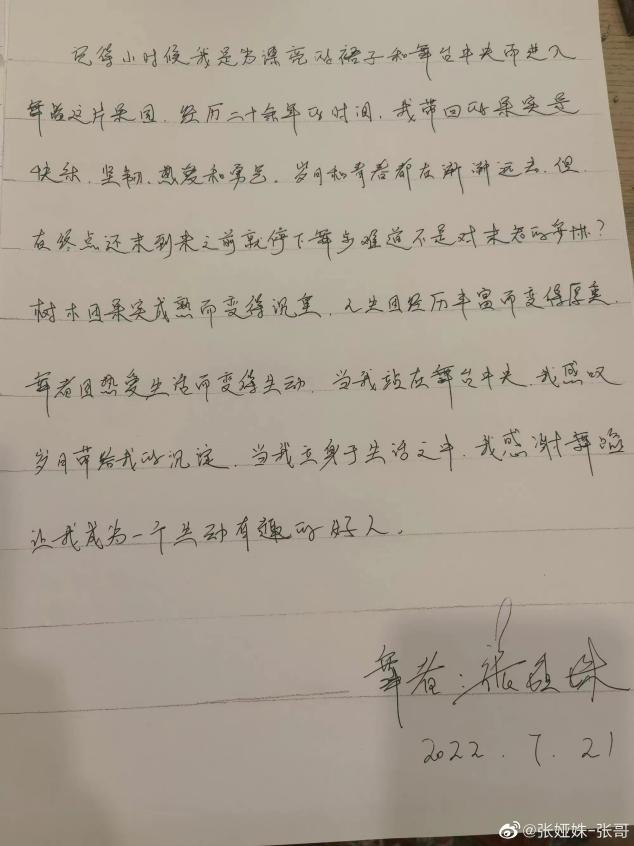 记得小时候我是为漂亮的裙子和舞台中央而进入
舞蹈这片果园，经历二十余年的时间，我带回的果实是
快乐、坚韧、热爱和勇气。岁月和青春都在渐渐远去，但
在终点还未到来之前就停下舞步难道不是对未知的
树木因果实成熟而变得沉重，人生因经历丰富而变得厚重，
舞者因热爱生活而变得生动。当我站在舞台中央，我感叹
岁月带给我的沉淀，当我立身于生活之中，我感谢舞蹈
让我成为一个生动有趣的好人。
舞者：张娅姝
2022.7.21
@张娅姝-张哥